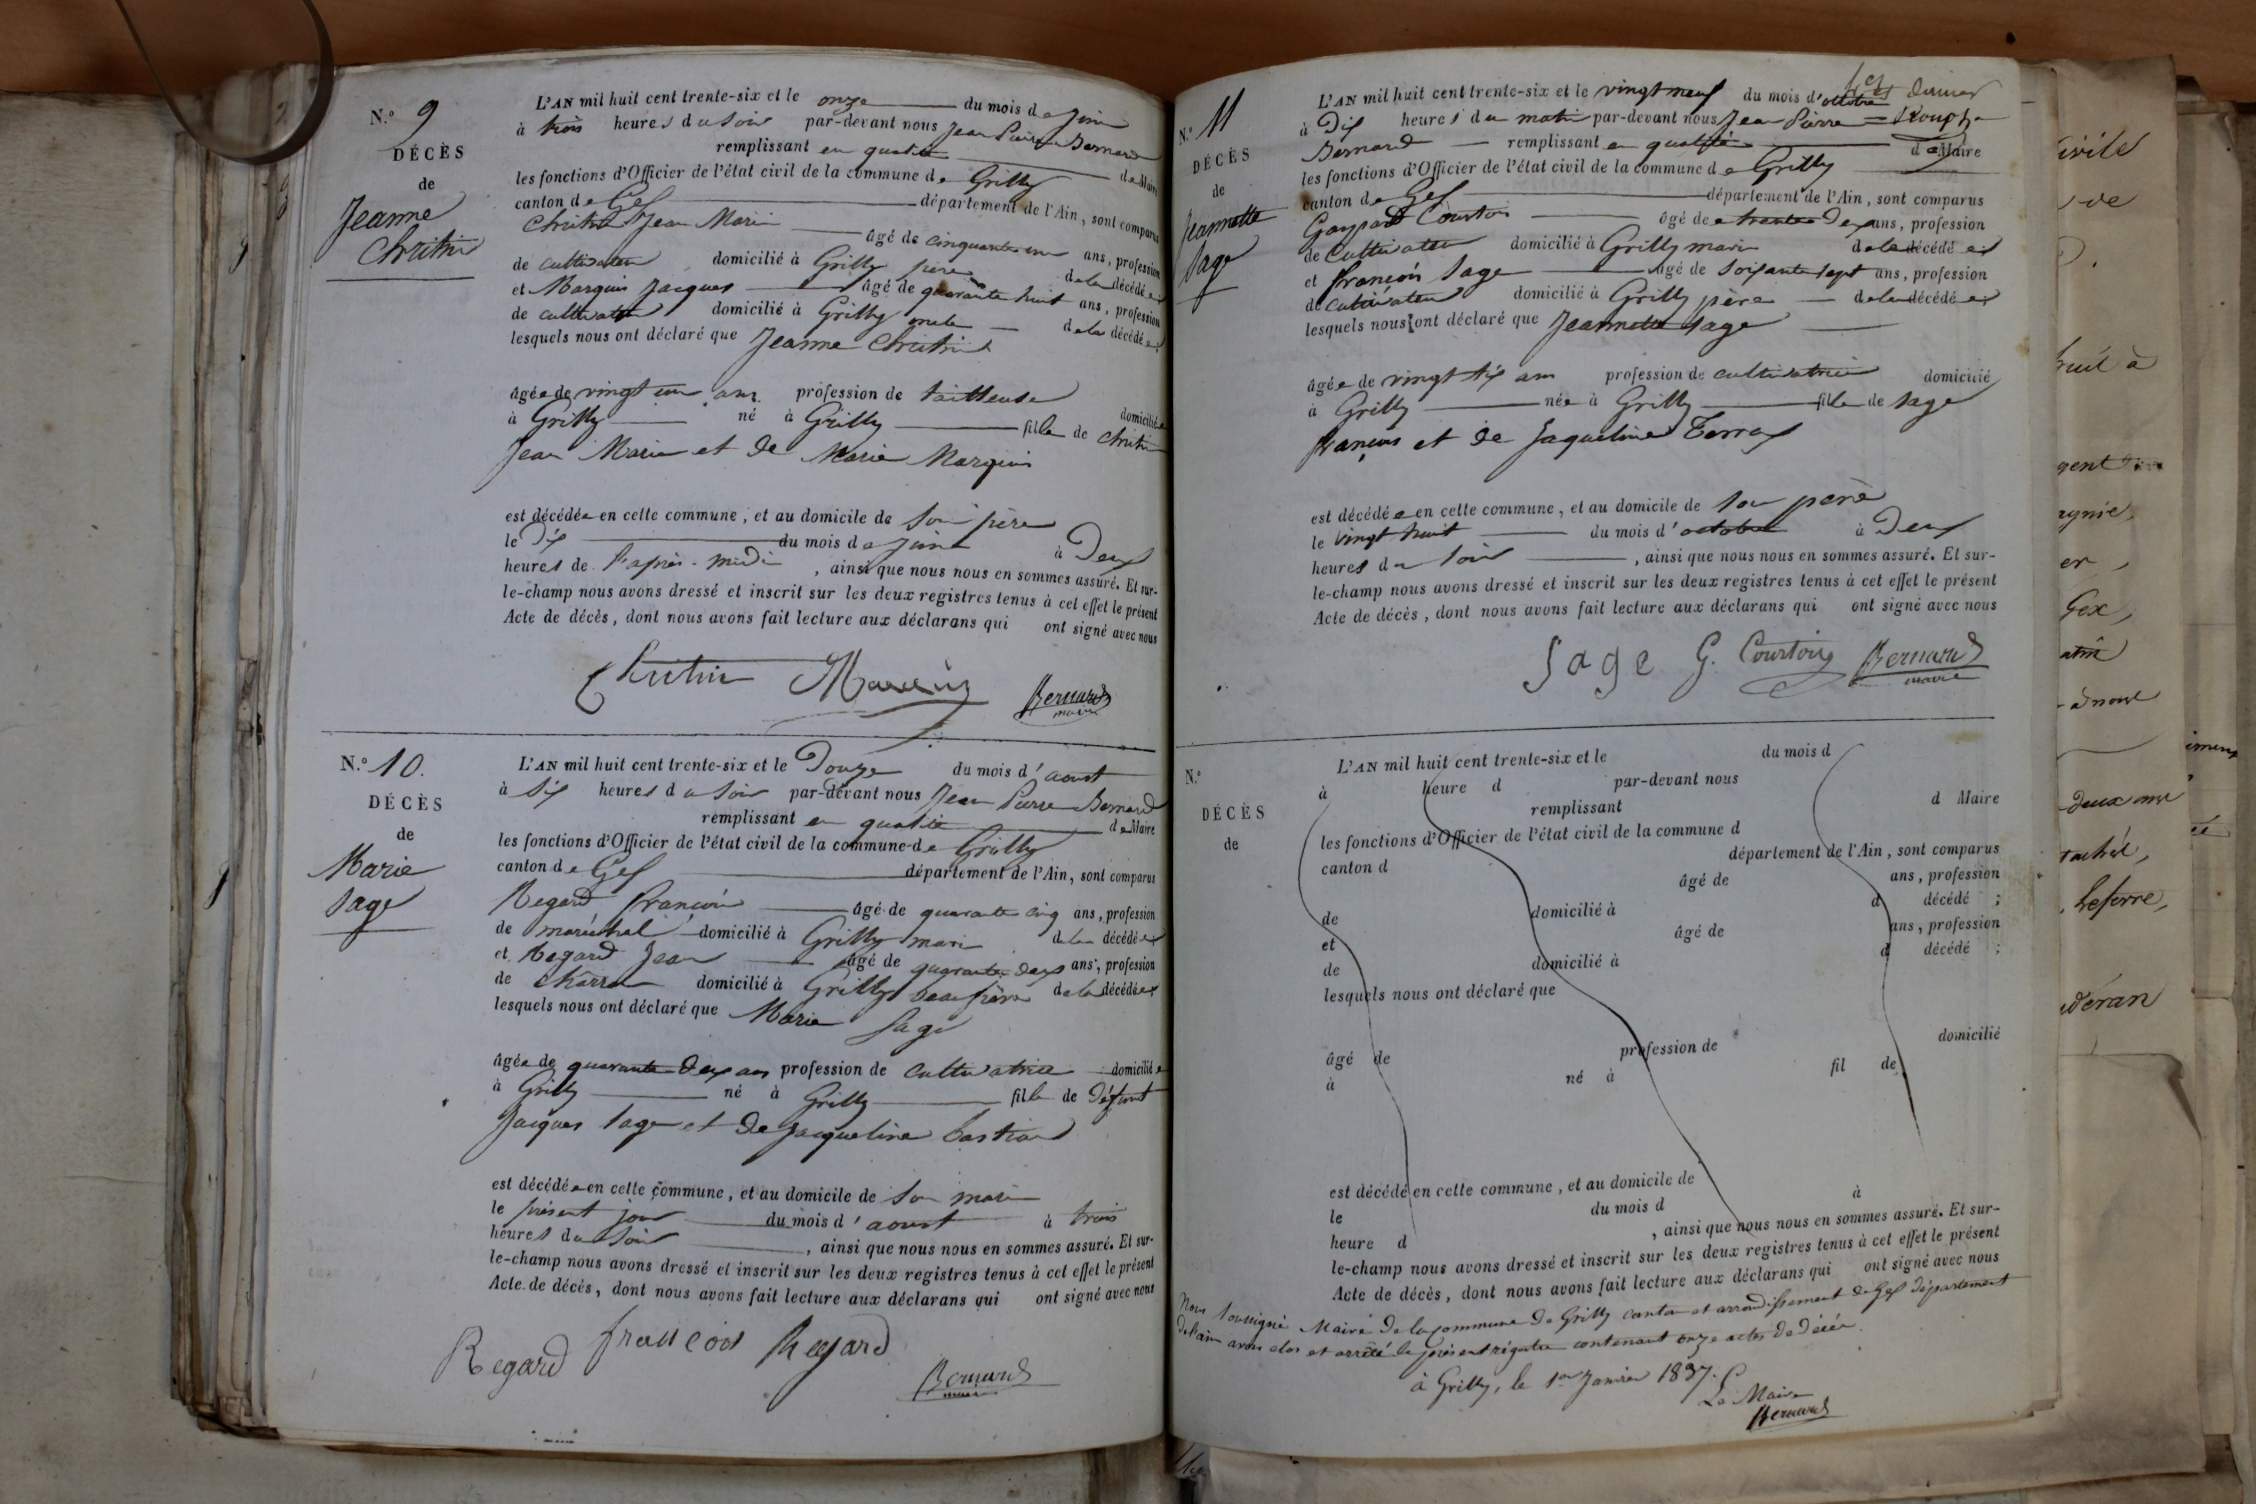 N.º 9
DÉCÈS
de
Jeanne
Chrétin
L'AN mil huit cent trente-six et le onze du mois de Juin
à trois heures du soir par-devant nous Jean Pierre Bernard
remplissant en qualité de Maire
les fonctions d'Officier de l'état civil de la commune de Grilly
canton de Gex département de l'Ain, sont comparus
Jean Marie âgé de cinquante un ans, profession
de cultivateur domicilié à Grilly père de la décédée
et Marquis Jacques âgé de quarante huit ans, profession
de cultivateur domicilié à Grilly oncle de la décédée;
lesquels nous ont déclaré que Jeanne
âgée de vingt un ans profession de tailleuse domiciliée
à Grilly né à Grilly fille de
Jean Marie et de Marie Marquis
est décédée en cette commune, et au domicile de son père
le dix du mois de Juin à Deux
heures de l'après-midi, ainsi que nous nous en sommes assuré. Et sur-
le-champ nous avons dressé et inscrit sur les deux registres tenus à cet effet le présent
Acte de décès, dont nous avons fait lecture aux déclarans qui ont signé avec nous
Bernard
maire
N.º 10.
DÉCÈS
de
Marie
Sage
L'AN mil huit cent trente-six et le Douze du mois d'aoust
à six heures du soir par-devant nous Jean Pierre Bernard
remplissant en qualité de Maire
les fonctions d'Officier de l'état civil de la commune de Grilly
canton de Gex département de l'Ain, sont comparus
Regard François âgé de quarante cinq ans, profession
de maréchal domicilié à Grilly mari de la décédée
et Regard Jean âgé de quarante deux ans, profession
de charron domicilié à Grilly beau frère de la décédée;
lesquels nous ont déclaré que Marie
Sage
âgée de quarante Deux ans profession de cultivatrice domiciliée
à Grilly né à Grilly fille de défunt
Jacques Sage et de Jacqueline Bastian
est décédée en cette commune, et au domicile de son mari
le présent jour du mois d'aoust à trois
heures du soir, ainsi que nous nous en sommes assuré. Et sur-
le-champ nous avons dressé et inscrit sur les deux registres tenus à cet effet le présent
Acte de décès, dont nous avons fait lecture aux déclarans qui ont signé avec nous
Regard françois Regard
Bernard
maire
N.º 11
DÉCÈS
de
Jeannette
Sage
dernier
L'AN mil huit cent trente-six et le vingt neuf du mois d'octobre
à Dix heures du matin par-devant nous Jean Pierre
Bernard remplissant en qualité de Maire
les fonctions d'Officier de l'état civil de la commune de Grilly
canton de Gex département de l'Ain, sont comparus
Gaspard Courtois âgé de trente Deux ans, profession
de cultivateur domicilié à Grilly mari de la décédée
et François Sage âgé de soixante sept ans, profession
de cultivateur domicilié à Grilly père de la décédée;
lesquels nous ont déclaré que Jeannette Sage
âgée de vingt six ans profession de cultivatrice domicilié
à Grilly née à Grilly fille de Sage
François et de Jaqueline Terrax
est décédée en cette commune, et au domicile de son père
le vingt huit du mois d'octobre à Deux
heures du soir, ainsi que nous nous en sommes assuré. Et sur-
le-champ nous avons dressé et inscrit sur les deux registres tenus à cet effet le présent
Acte de décès, dont nous avons fait lecture aux déclarans qui ont signé avec nous
Sage G. Courtois Bernard
maire
N.º
DÉCÈS
de
L'AN mil huit cent trente-six et le du mois d
à heure d par-devant nous
remplissant d Maire
les fonctions d'Officier de l'état civil de la commune d
canton d département de l'Ain, sont comparus
âgé de ans, profession
de domicilié à d décédé ;
et âgé de ans, profession
de domicilié à d décédé ;
lesquels nous ont déclaré que
âgé de profession de domicilié
à né à fil de
est décédé en cette commune, et au domicile de
le du mois d à
heure d , ainsi que nous nous en sommes assuré. Et sur-
le-champ nous avons dressé et inscrit sur les deux registres tenus à cet effet le présent
Acte de décès, dont nous avons fait lecture aux déclarans qui ont signé avec nous
Nous soussigné Maire de la commune de Grilly canton et arrondissement de Gex département
de l'ain avons clos et arrêté le présent régistre contenant onze actes de décès.
à Grilly, le 1er Janvier 1837.
Le Maire
Bernard